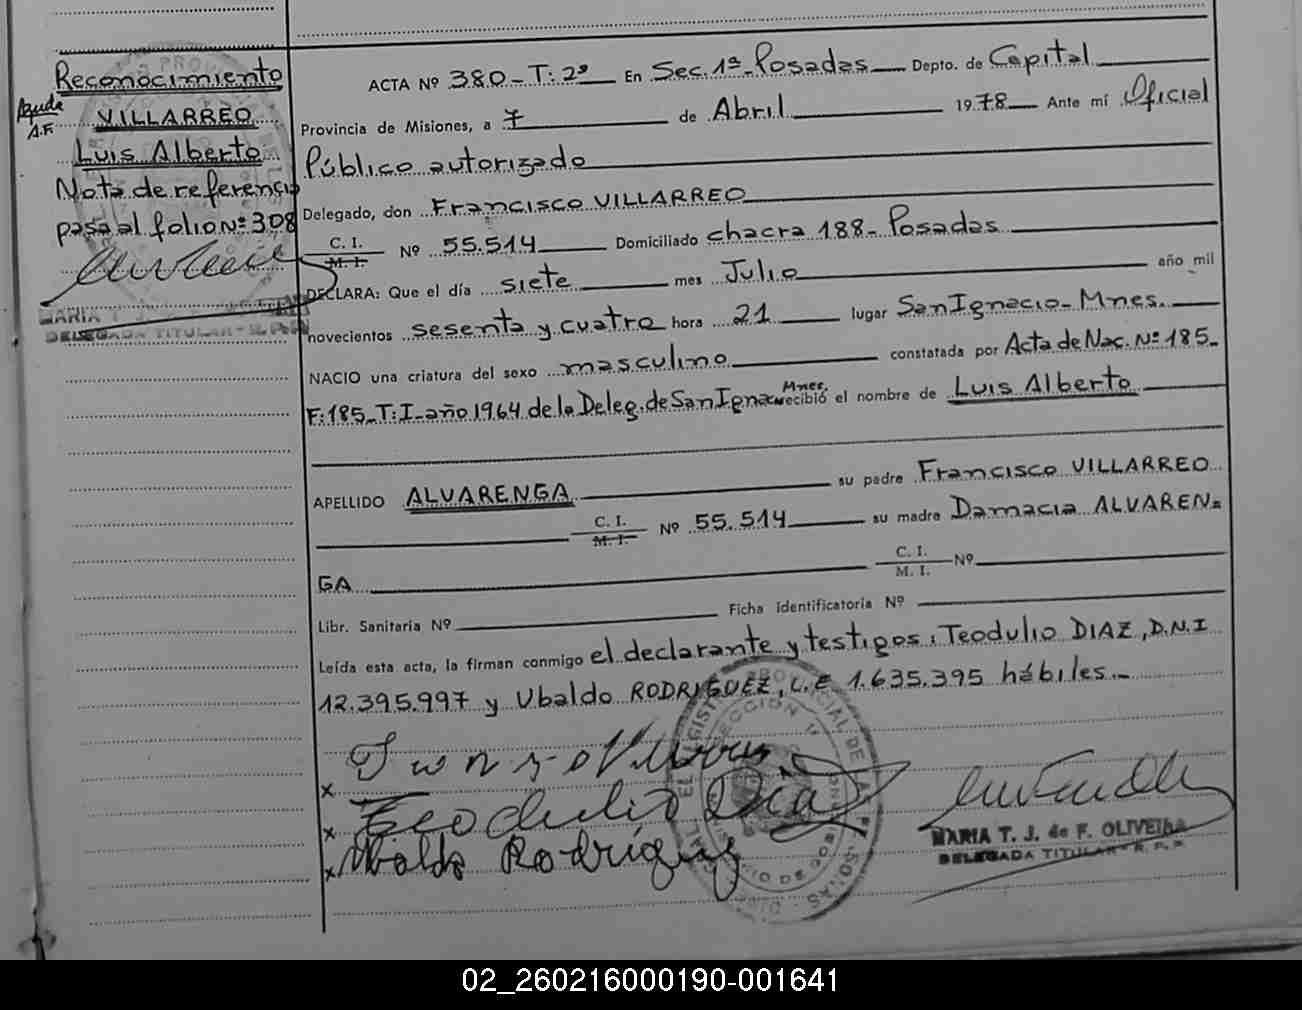 Reconocimiento
Ayuda
A.F.
VILLARREO
Luis Alberto
Nota de referencia
pasa al folio Nº 308
MARIA T. J.
DELEGADA TITULAR - R. P. P.
ACTA Nº 380 - T: 2º En Sec. 1ª - Posadas Depto. de Capital
Provincia de Misiones, a 7 de Abril 1978 Ante mí Oficial
Público autorizado
Delegado, don Francisco VILLARREO
C. I. M. I. Nº 55.514 Domiciliado chacra 188 - Posadas
DECLARA: Que el día siete mes Julio año mil
novecientos sesenta y cuatro hora 21 lugar San Ignacio - Mnes.
NACIO una criatura del sexo masculino constatada por Acta de Nac. Nº 185 -
F: 185 - T: I - año 1964 de la Deleg. de San Ignacio Mnes. recibió el nombre de Luis Alberto
APELLIDO ALVARENGA su padre Francisco VILLARREO
C. I. M. I. Nº 55.514 su madre Damacia ALVAREN=
GA C. I. M. I. Nº
Libr. Sanitaria Nº Ficha Identificatoria Nº
Leída esta acta, la firman conmigo el declarante y testigos: Teodulio DIAZ, D.N.I
12.395.997 y Ubaldo RODRIGUEZ, L.E 1.635.395 hábiles. -
x
x Teodulio Diaz
x Ubaldo Rodriguez
MARIA T. J. de F. OLIVEIRA
DELEGADA TITULAR - R. P. P.
02_260216000190-001641